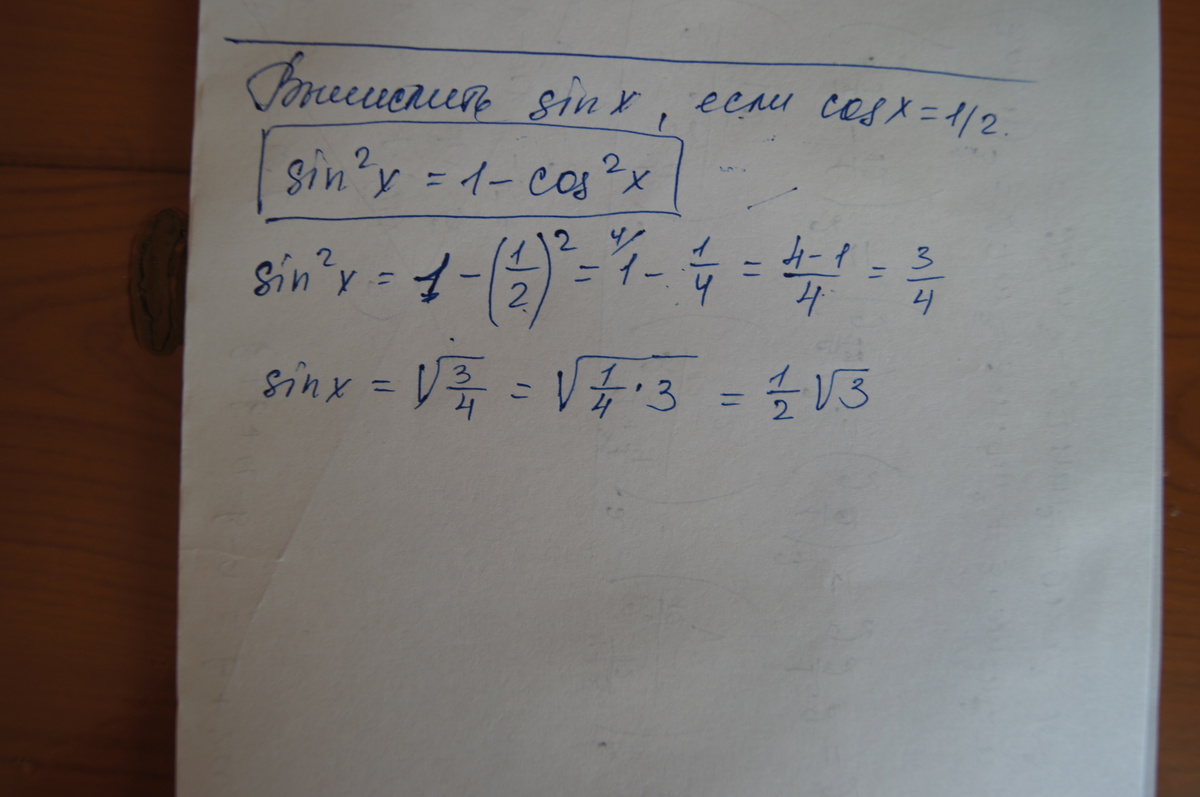 Вычислить sin x, если cos x = 1/2.
sin²x = 1 - cos²x
sin²x = 1 - (1/2)² = 1 4/ - 1/4 = (4-1)/4 = 3/4
sin x = √(3/4) = √(1/4 · 3) = 1/2 √3